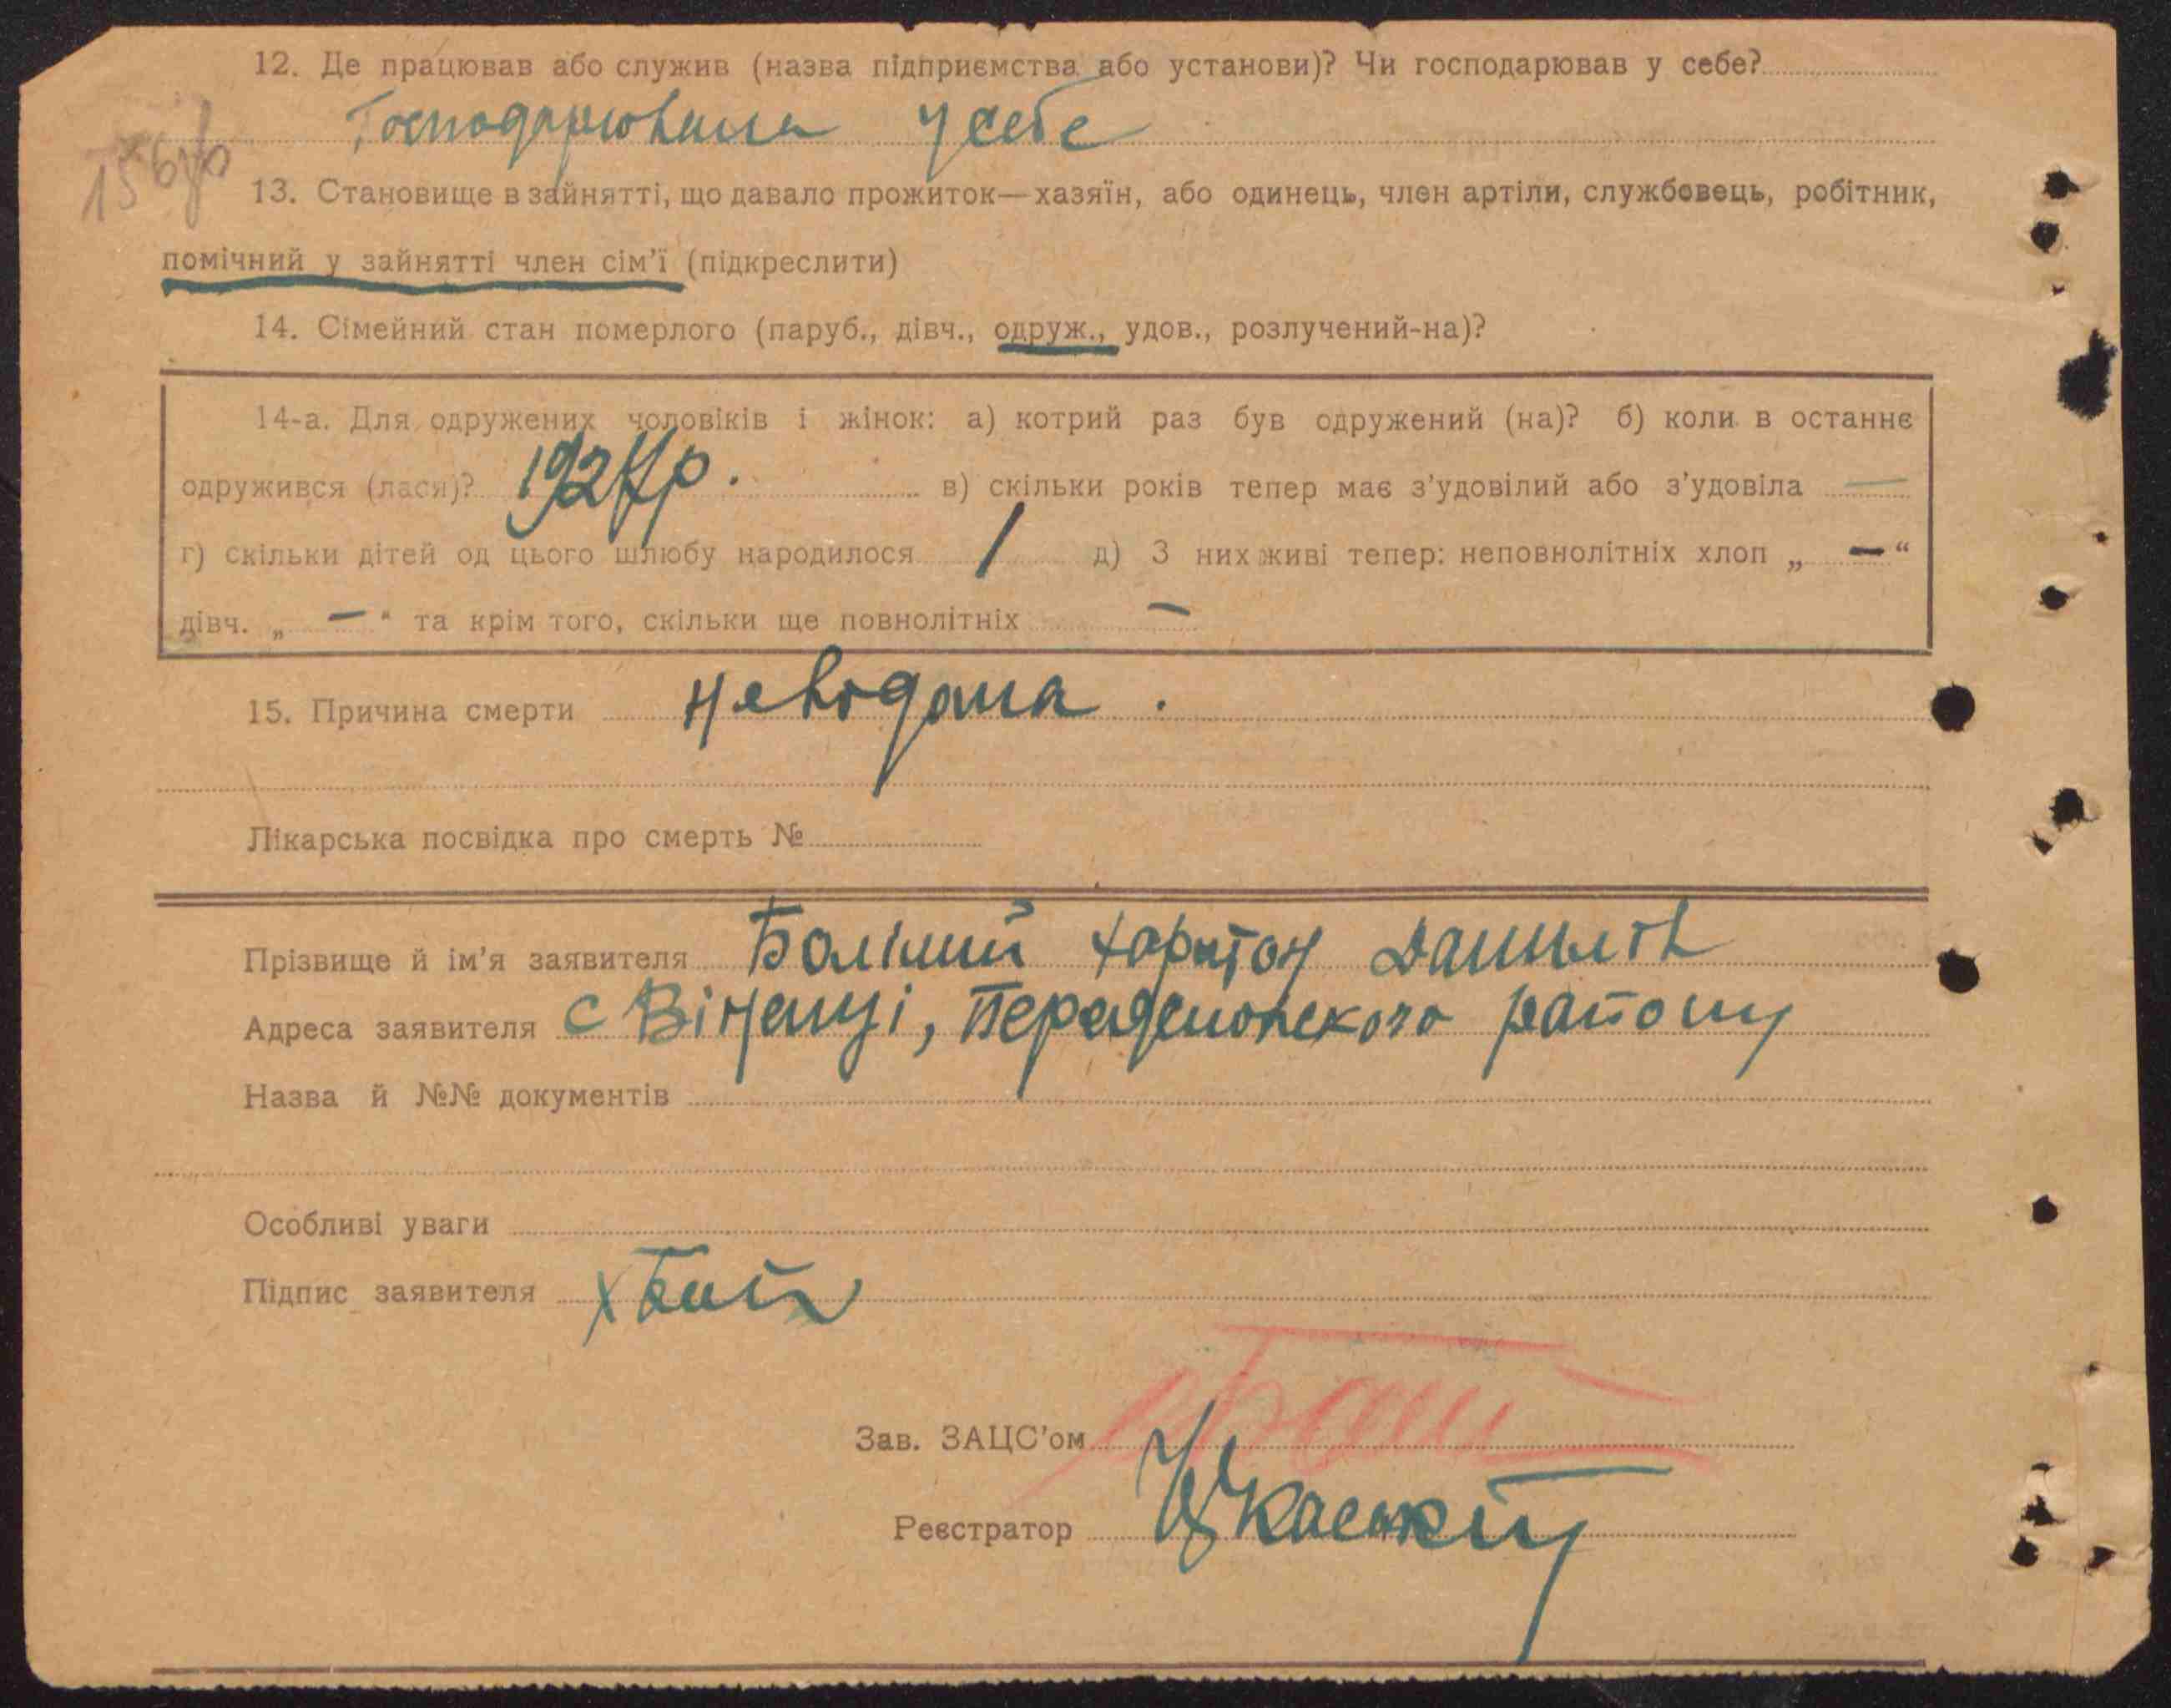 12. Де працював або служив (назва підприємства або установи)? Чи господарював у себе?
Господарювала у себе
13. Становище в зайнятті, що давало прожиток—хазяїн, або одинець, член артіли, службовець, робітник,
помічний у зайнятті член сім'ї (підкреслити)
14. Сімейний стан померлого (паруб., дівч., одруж., удов., розлучений-на)?
14-а. Для одружених чоловіків і жінок: а) котрий раз був одружений (на)? б) коли в останнє
одружився (лася)? 1927 р. в) скільки років тепер має з'удовілий або з'удовіла —
г) скільки дітей од цього шлюбу народилося 1 д) З них живі тепер: неповнолітніх хлоп „ — “
дівч. „ — “ та крім того, скільки ще повнолітніх —
15. Причина смерти невідома.
Лікарська посвідка про смерть №
Прізвище й ім'я заявителя Харитон Данилів
Адреса заявителя с Віненці, району
Назва й №№ документів
Особливі уваги
Підпис заявителя
Зав. ЗАЦС'ом
Реєстратор